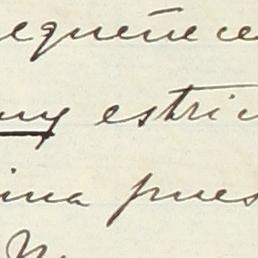 equeñece
muy estric
ina pues